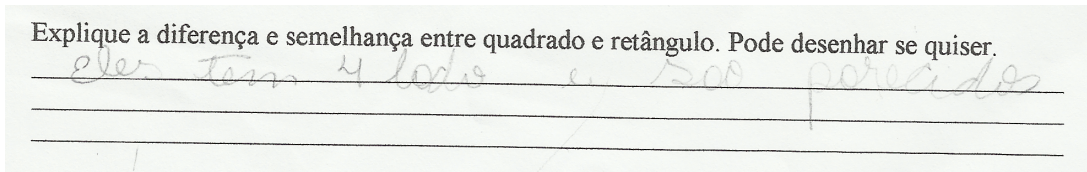 Explique a diferença e semelhança entre quadrado e retângulo. Pode desenhar se quiser.
eles tem 4 lado e são parecidos